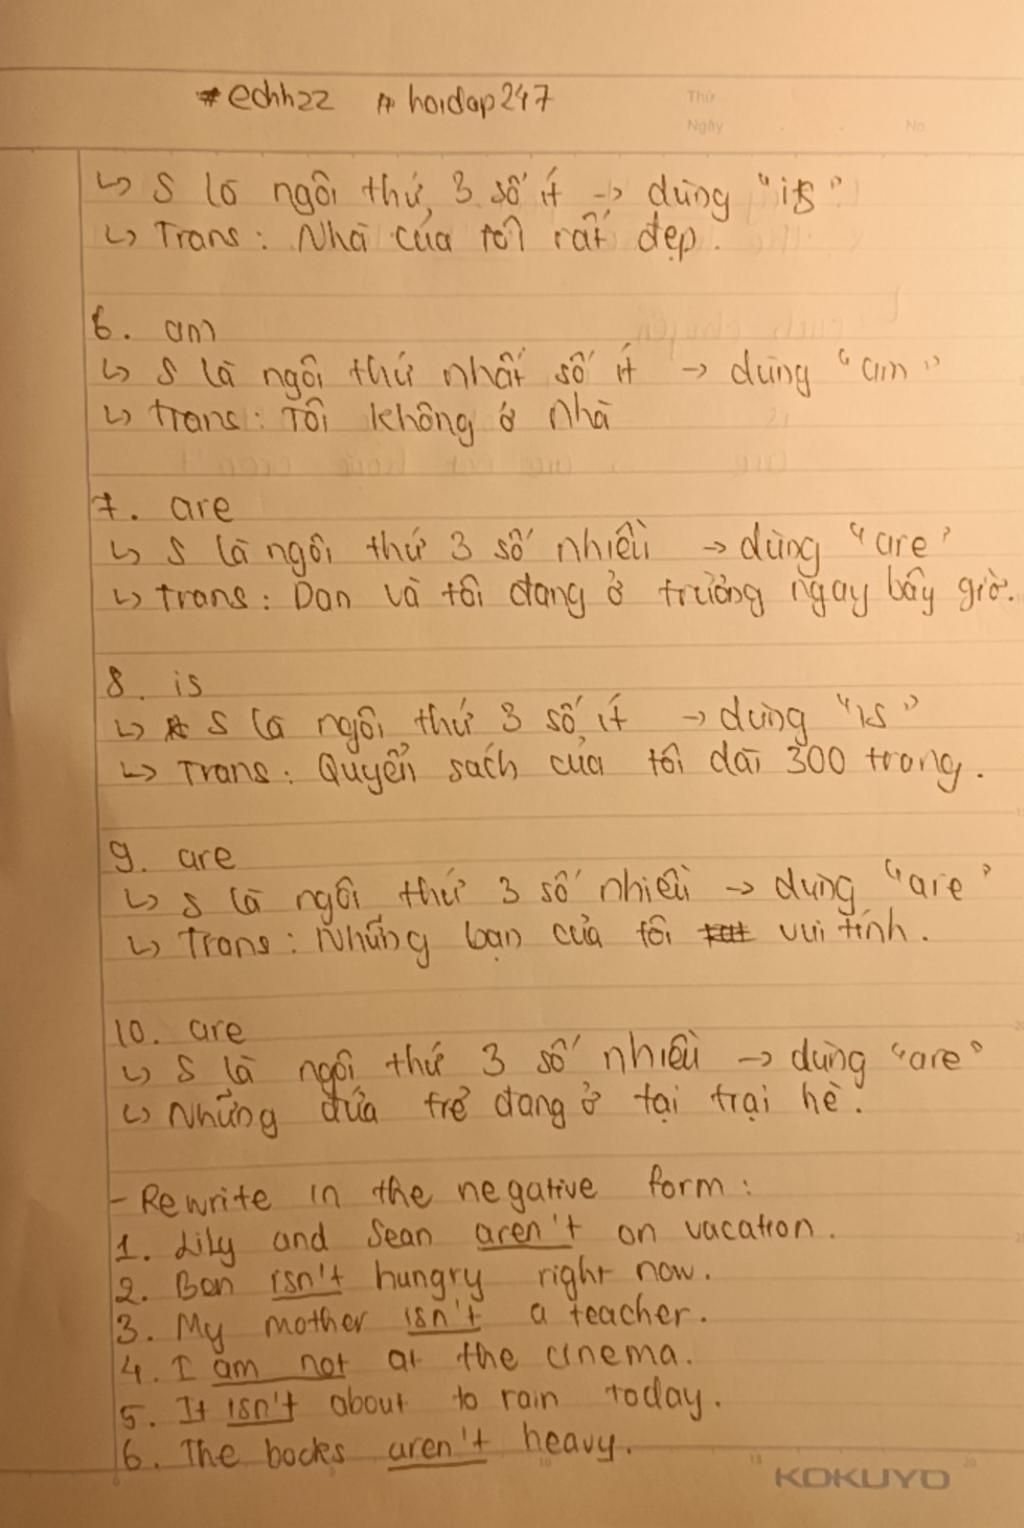 #echh22 #hoidap247
Thứ
Ngày
No
↳ S là ngôi thứ 3 số ít → dùng "is"
↳ Trans: Nhà của tôi rất đẹp.
6. am
↳ S là ngôi thứ nhất số ít → dùng "am"
↳ trans: Tôi không ở nhà
7. are
↳ S là ngôi thứ 3 số nhiều → dùng "are"
↳ trans: Dan và tôi đang ở trường ngay bây giờ.
8. is
↳ S là ngôi thứ 3 số ít → dùng "is"
↳ Trans: Quyển sách của tôi dài 300 trang.
9. are
↳ S là ngôi thứ 3 số nhiều → dùng "are"
↳ Trans: Những bạn của tôi vui tính.
10. are
↳ S là ngôi thứ 3 số nhiều → dùng "are"
↳ Những đứa trẻ đang ở tại trại hè.
- Rewrite in the negative form:
1. Lily and Sean aren't on vacation.
2. Ben isn't hungry right now.
3. My mother isn't a teacher.
4. I am not at the cinema.
5. It isn't about to rain today.
6. The books aren't heavy.
KOKUYO